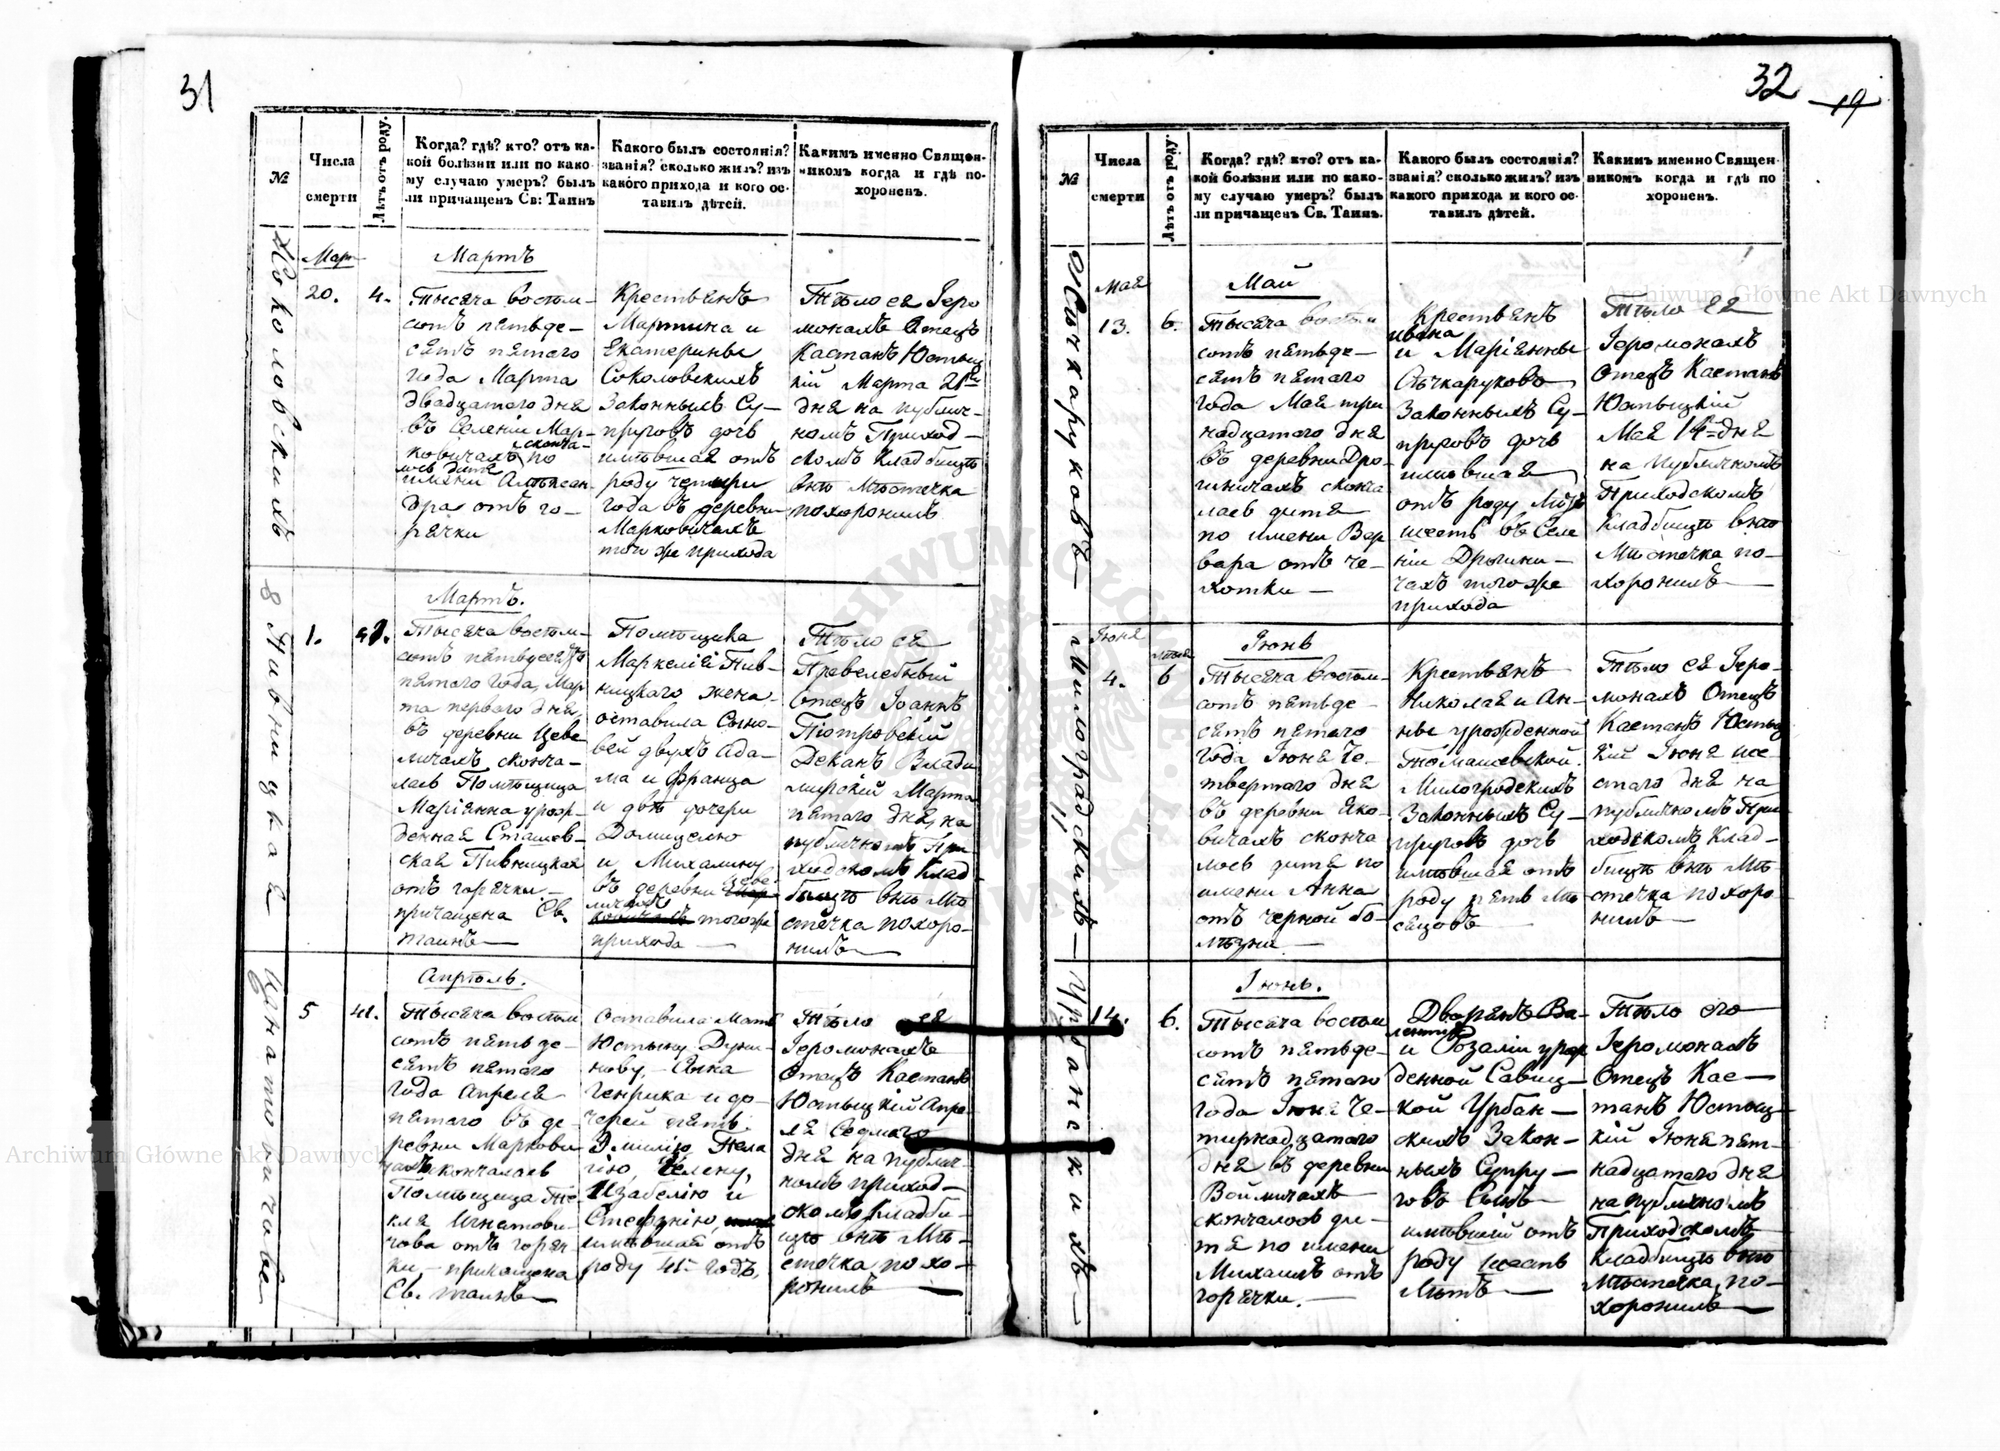 31
№
Числа
смерти
Лѣтъ отъ роду.
Когда? гдѣ? кто? отъ ка-
кой болѣзни или по како-
му случаю умеръ? былъ
ли причащенъ Св: Таинъ
Какого былъ состоянія?
званія? сколько жилъ? изъ
какого прихода и кого ос-
тавилъ дѣтей.
Какимъ именно Священ-
никомъ когда и гдѣ по-
хороненъ.
Соколовскихъ
Мар
20.
4.
Мартъ
Тысяча восем-
сотъ пятьде-
сятъ пятого
года Марта
двадцатого дня
въ селении Мар-
ковичахъ сконча-
лось дитя по
имени Алексан
дра отъ го-
рячки
Крестьянъ
Мартина и
Екатерины
Соколовскихъ
Законныхъ Су-
пруговъ дочь
имѣвшая отъ
роду четыри
года въ деревни
Марковичахъ
того же прихода
Тѣло ея Іеро
монахъ Отецъ
Каетанъ Юстыц
кій Марта 21го
дня на публич-
номъ Приход-
скомъ Кладбищѣ
внѣ Мѣстечка
похоронилъ
8 Пивницкая
1.
Мартъ.
Тысяча восем-
сотъ пятьдесятъ
пятого года, Мар
та первого дня
въ деревни Цеве
личахъ сконча-
лась Помѣщица
Маріянна урож-
денная Сташев-
ская Пивницкая
отъ горячки-
причащена Св.
таинъ
Помѣщика
Маркелія Пив-
ницкаго жена
оставила Сыно-
вей двухъ Ада-
ма и Франца
и двѣ дочери
Домицелю
и Михалину
въ деревни Цеве
личахъ
того же
прихода
Тѣло ея
Превелебный
Отецъ Іоаннъ
Піотровскій
Деканъ Влади
мирскій Марта
пятого дня, на
публичномъ При
ходскомъ Клад
бищѣ внѣ Мѣ
стечка похоро-
нилъ
Игнатовичова
5
41.
Апрѣль.
Тысяча восем
сотъ пятьде-
сятъ пятого
года Апреля
пятого въ де-
ревни Маркови
чахъ скончалась
Помѣщица Те-
кля Игнатови-
чова отъ горяч
ки,- причащена
Св. таинъ
Оставила Мать
Юстыну
Сына
Генрика и до-
черей пять
Эмилію Пела
гію, Елену,
Изабелію и
Стефанію,
имѣвшай отъ
роду 41 годъ,
Тѣло ея
Іеромонахъ
Отецъ Каетанъ
Юстыцкій Апре-
ля Седмого
дня на публич-
номъ приход-
скомъ Кладби-
щѣ внѣ Мѣ-
стечка похо-
ронилъ
32
19
№
Числа
смерти
Лѣтъ отъ роду.
Когда? гдѣ? кто? отъ ка-
кой болѣзни или по како-
му случаю умеръ? былъ
ли причащенъ Св. Таинъ.
Какого былъ состоянія?
званія? сколько жилъ? изъ
какого прихода и кого ос-
тавилъ дѣтей.
Какимъ именно Священ-
никомъ когда и гдѣ по
хороненъ.
Мая
13.
6.
Май
Тысяча восем
сотъ пятьде-
сятъ пятого
года Мая три
надцатого дня
въ деревни Дро-
гиничахъ сконча
лась дитя
по имени Вар
вара отъ че-
хотки
Крестьянъ
Ивана
и Маріянны
Законныхъ Су-
пруговъ дочь
имѣвшая
отъ роду лѣтъ
шесть въ Селе
ніи Дрогини-
чахъ того же
прихода
Тѣло ея
Іеромонахъ
Отецъ Каетанъ
Юстыцкій
Мая 14 дня
на публичномъ
Приходскомъ
Кладбищѣ внѣ
Мѣстечка по-
хоронилъ
Милоградскихъ
Іюня
4.
6
Іюнь
Тысяча восем-
сотъ пятьде-
сятъ пятого
года Іюня Че-
твертого дня
въ деревни Яко
вичахъ сконча
лось дитя по
имени Анна
отъ черной бо-
лѣзни
Крестьянъ
Николая и Ан-
ны урожденной
Томашевской
Милогродскихъ
Законныхъ Су-
пруговъ дочь
имѣвшая отъ
роду пять мѣ
сяцовъ
Тѣло ея Іеро-
монахъ Отецъ
Каетанъ Юстыц
кій Іюня ше-
стого дня на
публичномъ При
ходскомъ Клад-
бищѣ внѣ Мѣ
стечка похоро
нилъ
Урбанскихъ
14.
6.
Іюнь.
Тысяча восем
сотъ пятьде-
сятъ пятого
года Іюня Че-
тирнадцатого
дня въ деревни
Войничахъ
скончалось ди-
тя по имени
Михаилъ отъ
горячки.
Дворянъ Ва-
лентія
и Розаліи урож
денной Савиц-
кой Урбан-
скихъ Закон-
ныхъ Супру-
говъ Сынъ
имѣвшій отъ
роду шесть
лѣтъ
Тѣло его
Іеромонахъ
Отецъ Кае-
танъ Юстыц-
кій Іюня пят-
надцатого дня
на публичномъ
Приходскомъ
Кладбищѣ внѣ
Мѣстечка, по-
хоронилъ
Archiwum Główne Akt Dawnych
Archiwum Główne Akt Dawnych